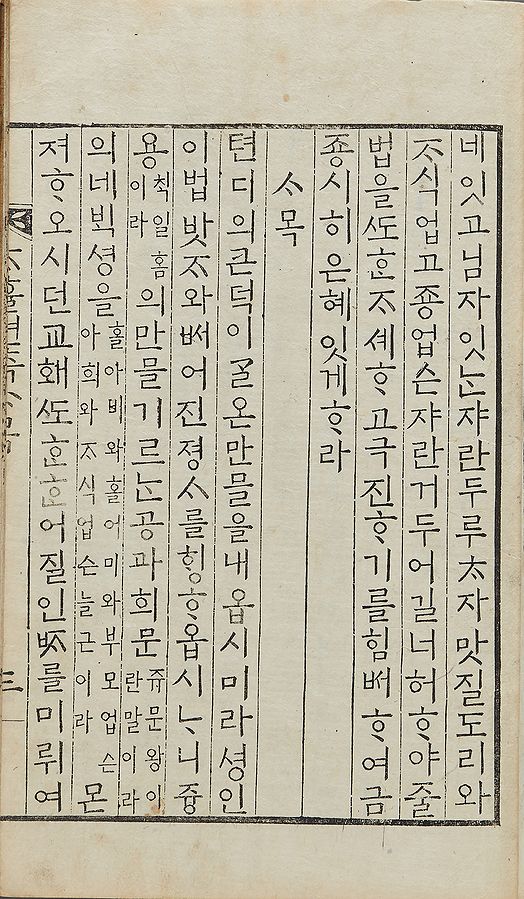 네잇고님자잇ᄂᆞᆫ쟈란두루ᄎᆞ자맛질도리와
ᄌᆞ식업고죵업슨쟈란거두어길너허ᄒᆞ야줄
법을ᄯᅩᄒᆞᆫᄌᆞ셰ᄒᆞ고극진ᄒᆞ기를힘ᄡᅥᄒᆞ여금
죵시히은혜잇게ᄒᆞ라
ᄉᆞ목
텬디의큰덕이ᄀᆞᆯ온만믈을내옵시미라셩인
이법밧ᄌᆞ와ᄡᅥ어진졍ᄉᆞ를ᄒᆡᆼᄒᆞ옵시ᄂᆞ니즁
용ᄎᆡᆨ일홈이라의만믈기르ᄂᆞᆫ공과희문쥬문왕이란말이라
의네ᄇᆡᆨ셩을홀아비와홀어미와부모업슨아희와ᄌᆞ식업슨늘근이라몬
져ᄒᆞ오시던교홰ᄯᅩᄒᆞᆫᄒᆞᆫ어질인ᄧᆞ를미뤼여
三